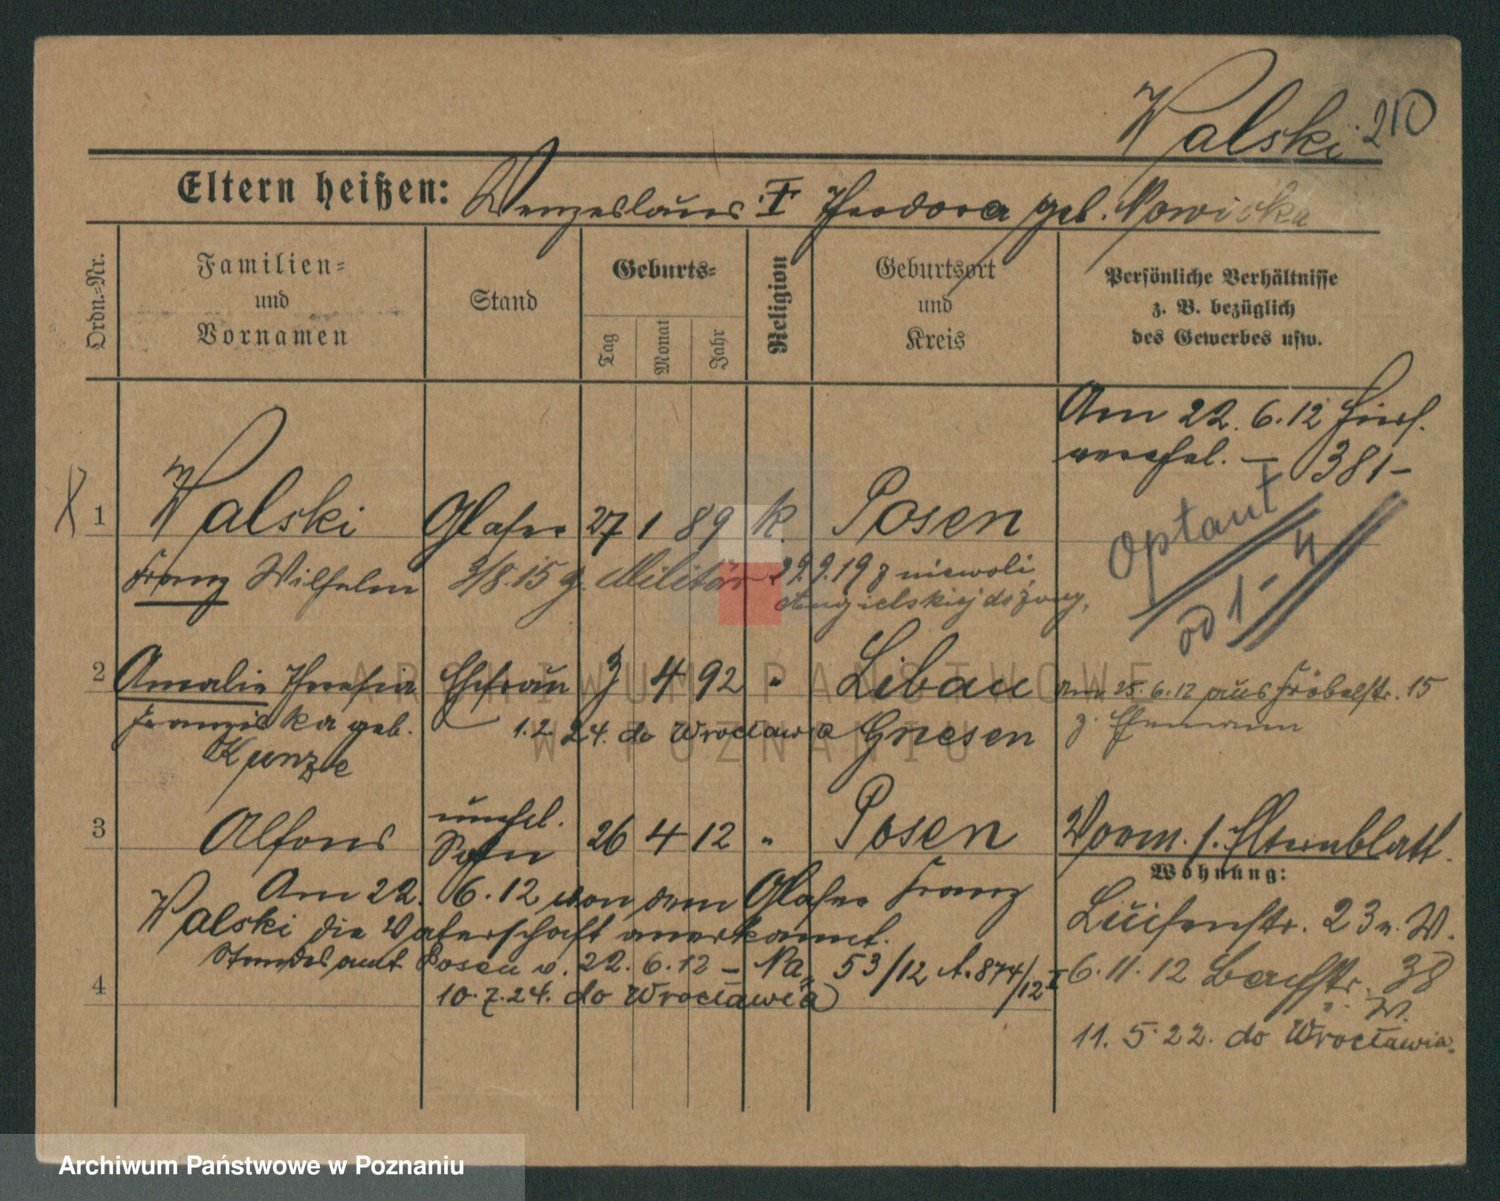 Walski. 210
Eltern heißen: Wenzeslaus I Theodora geb. Nowicka
Ordn.=Nr.
Familien=
und
Vornamen
Stand
Geburts=
Tag
Monat
Jahr
Religion
Geburtsort
und
Kreis
Persönliche Verhältnisse
z. B. bezüglich
des Gewerbes usw.
Am 22. 6. 12
381-
1 Walski Glaser 27 1 89 k. Posen
Optant
Franz Wilhelm 3/8.15 z. Militär 29.9.19 z niewoli
Angielskiej
od 1-4
2 Amalie Theresia Ehefrau 3 4 92 " Libau
am 25.6.12 aus Fröbelstr. 15
Franziska geb. 1.2.24. do Wrocławia Gnesen
z. Ehemann
Kunze
3 Alfons unehel. Sohn 26 4 12 " Posen
Vorm. s. Elternblatt.
Wohnung:
Am 22. 6. 12 von dem Glaser Franz
Walski die Vaterschaft anerkannt.
Luisenstr. 23
Standesamt Posen v. 22. 6. 12 - 53/12 A. 874/12 I
6. 11. 12 38
4 10.7.24. do Wrocławia
W.
11. 5. 22. do Wrocławia.
ARCHIWUM PAŃSTWOWE
W POZNANIU
Archiwum Państwowe w Poznaniu